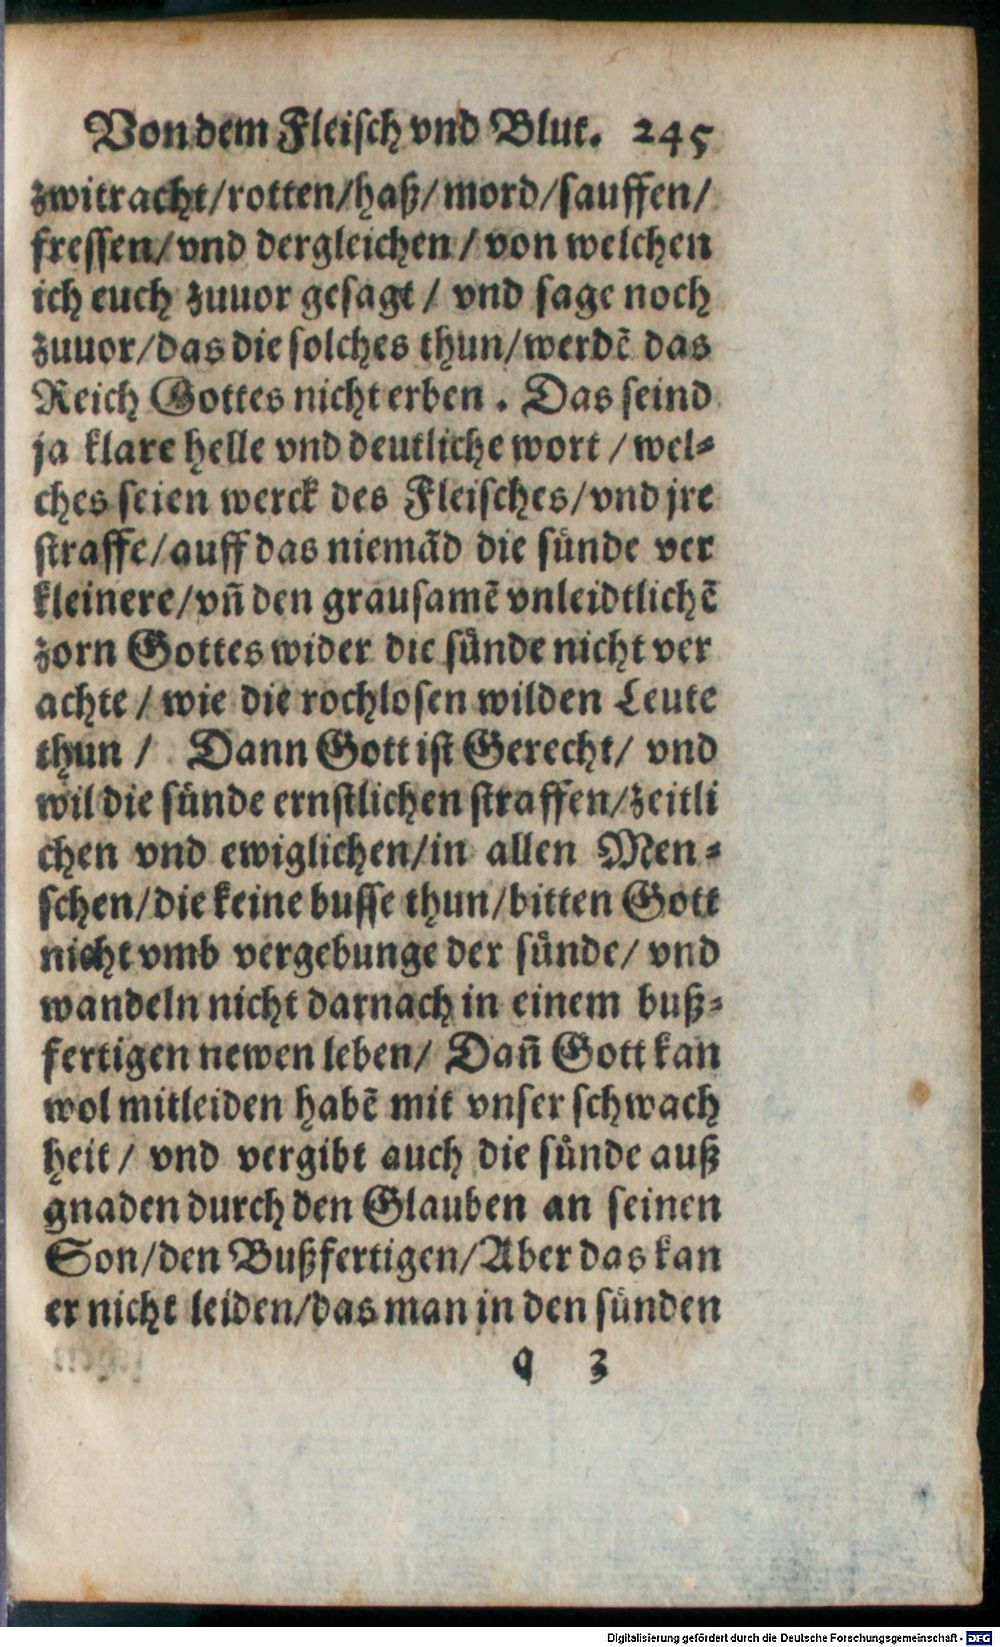 Von dem Fleisch vnd Blut. 245
zwitracht/rotten/haß/mord/sauffen/
fressen/vnd dergleichen/von welchen
ich euch zuuor gesagt/ vnd sage noch
zuuor/das die solches thun/werdē das
Reich Gottes nicht erben. Das seind
ja klare helle vnd deutliche wort/wel⸗
ches seien werck des Fleisches/vnd jre
straffe/auff das niemād die sünde ver
kleinere/vñ den grausamē vnleidtlichē
zorn Gottes wider die sünde nicht ver
achte/ wie die rochlosen wilden Leute
thun/ Dann Gott ist Gerecht/ vnd
wil die sünde ernstlichen straffen/zeitli
chen vnd ewiglichen/in allen Men⸗
schen/die keine busse thun/bitten Gott
nicht vmb vergebunge der sünde/ vnd
wandeln nicht darnach in einem buß⸗
fertigen newen leben/ Dañ Gott kan
wol mitleiden habē mit vnser schwach
heit/ vnd vergibt auch die sünde auß
gnaden durch den Glauben an seinen
Son/den Bußfertigen/Aber das kan
er nicht leiden/das man in den sünden
q 3
Digitalisierung gefördert durch die Deutsche Forschungsgemeinschaft - DFG